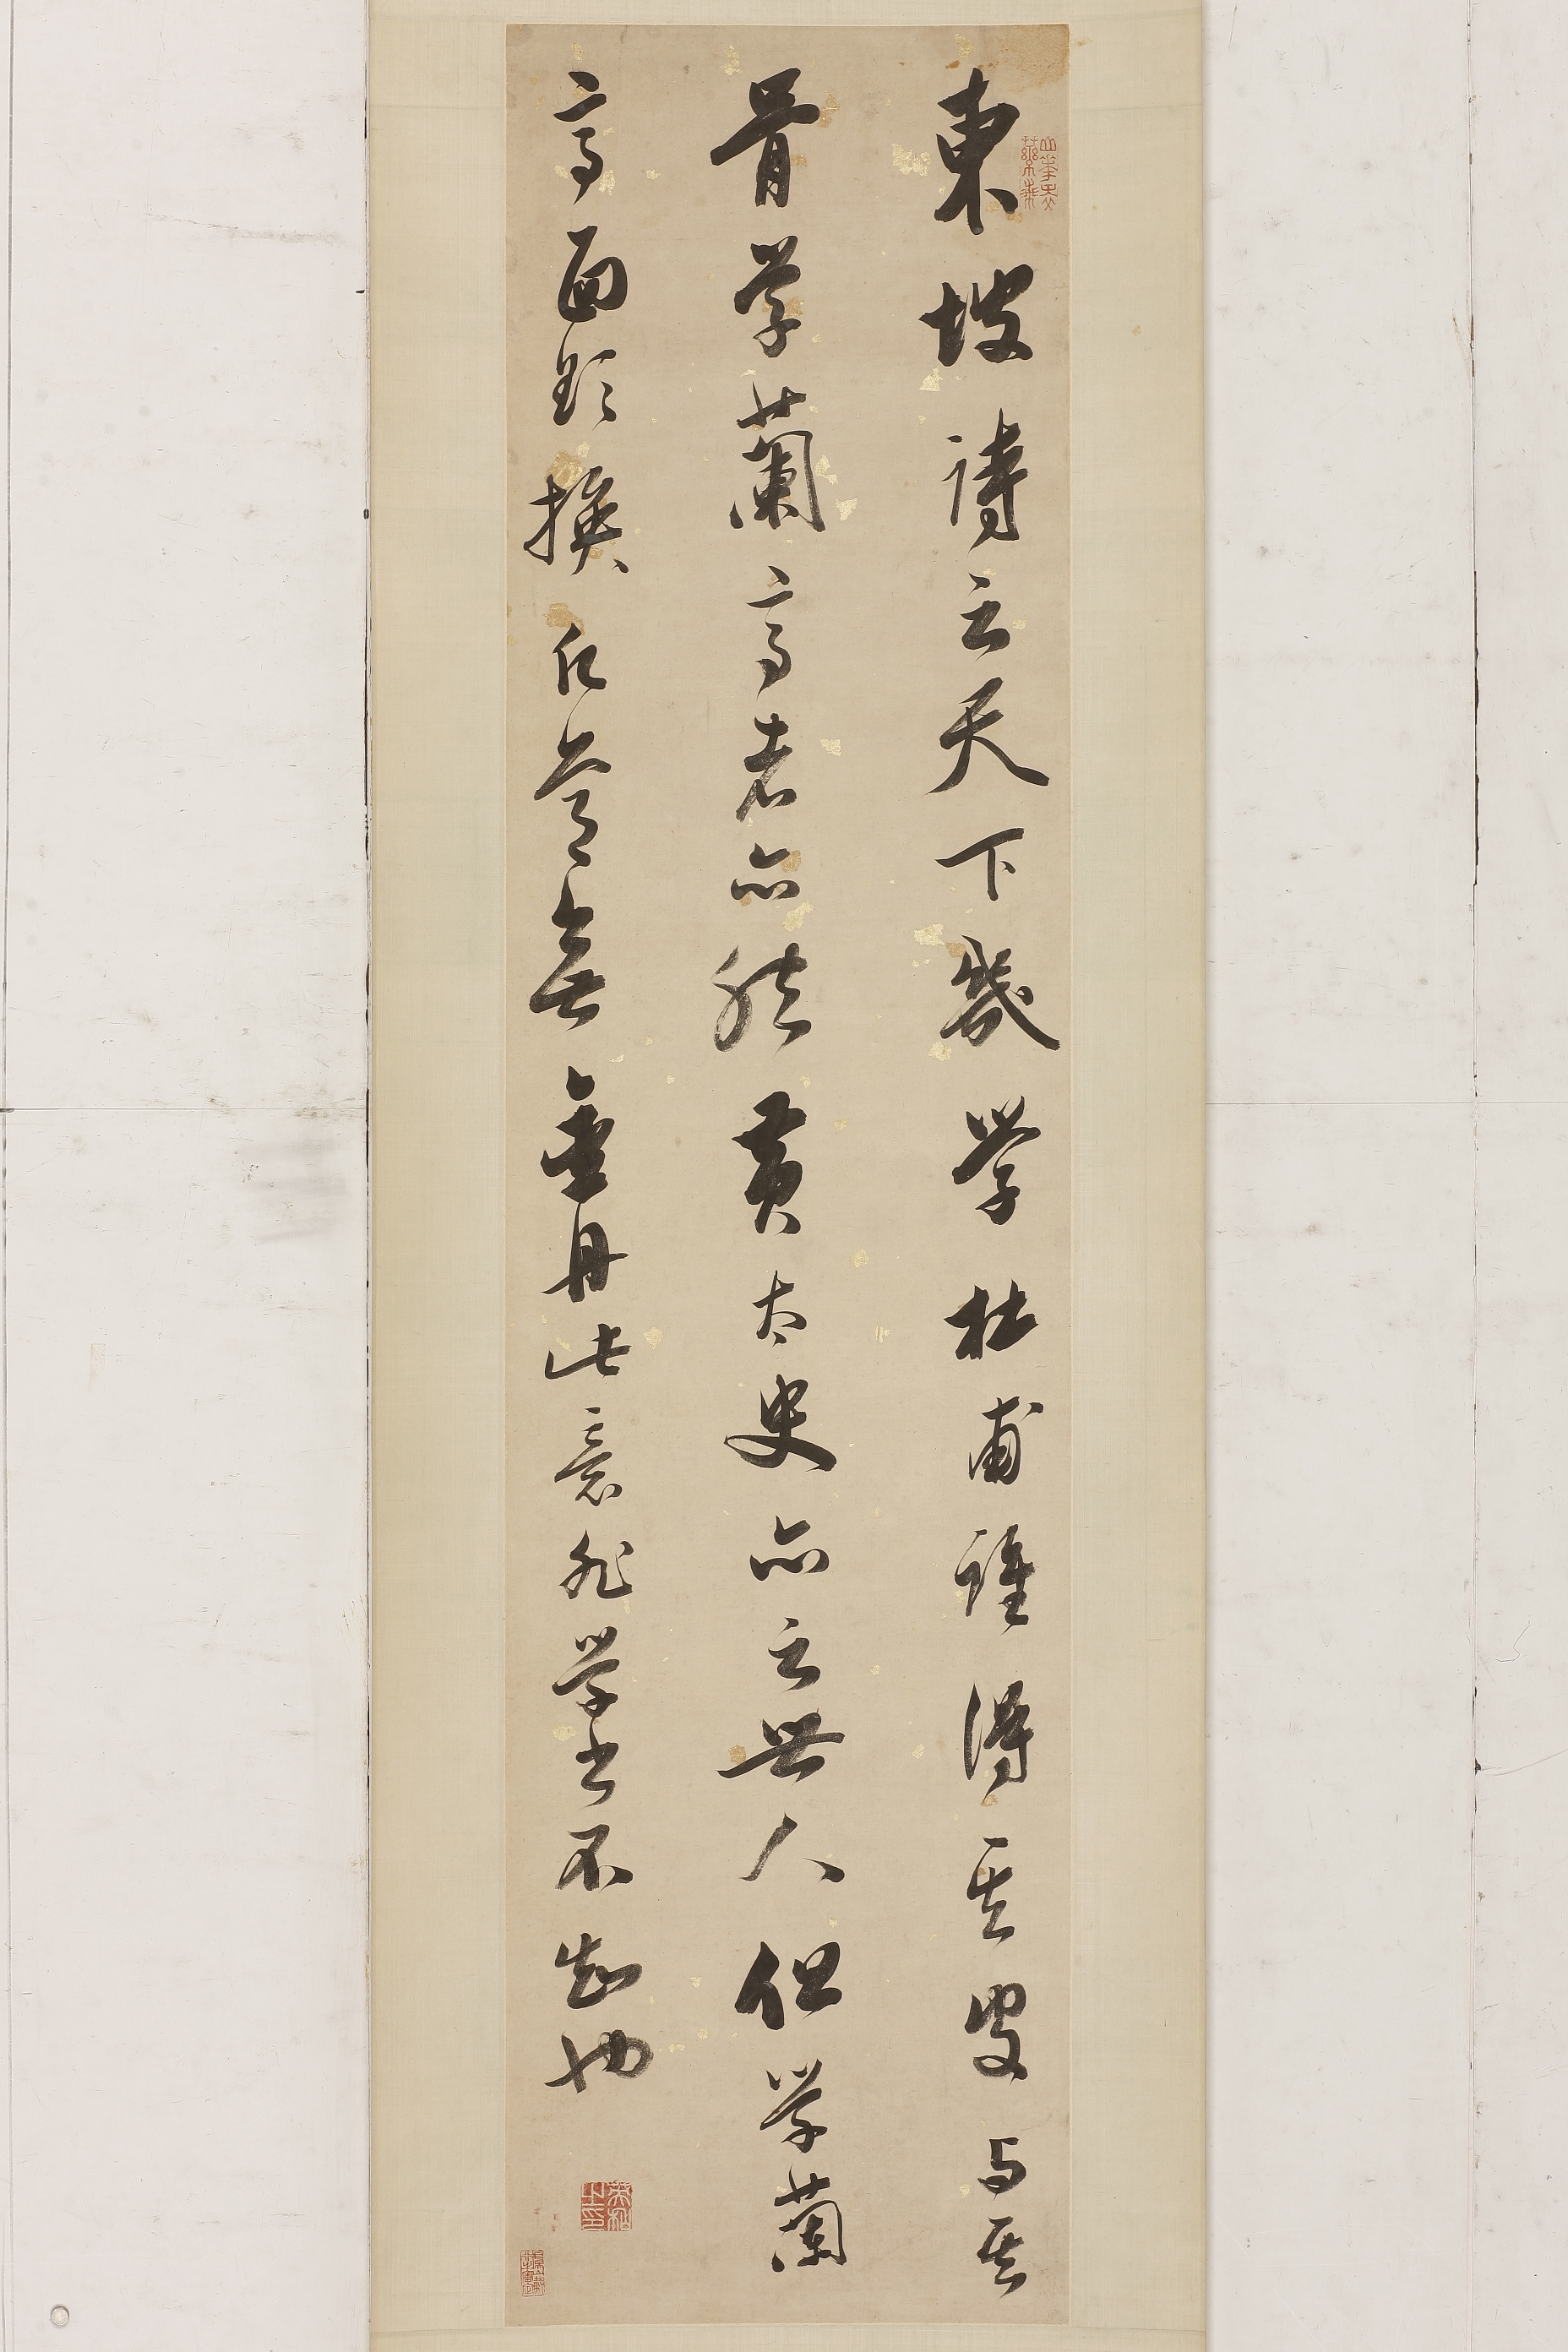 東坡詩云天下幾學杜甫誰得其皮与其
骨學蘭亭者亦然黃太史亦云世人但學蘭
亭面欲換凡骨無金丹此意非學書不知也